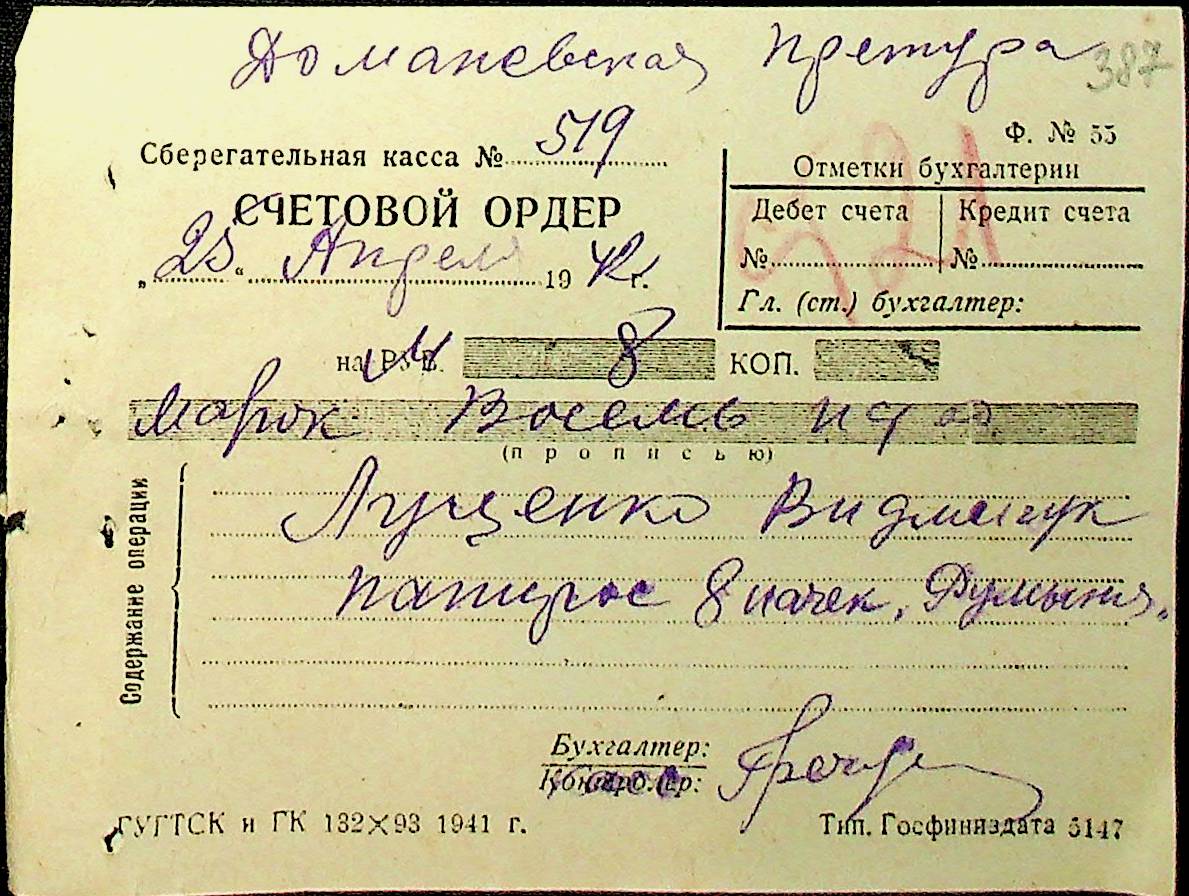 Домановская Претура
387
Ф. № 55
Сберегательная касса № 519
СЧЕТОВОЙ ОРДЕР
Отметки бухгалтерии
Дебет счета Кредит счета
№ №
Гл. (ст.) бухгалтер:
„25“ Апреля 1942 г.
на РУБ. 8 КОП.
Марок Восемь
(прописью)
Содержание операции
Луценко
папирос 8 пачек,
Бухгалтер:
Контролер:
ГУГТСК и ГК 132×93 1941 г.
Тип. Госфиниздата 5147